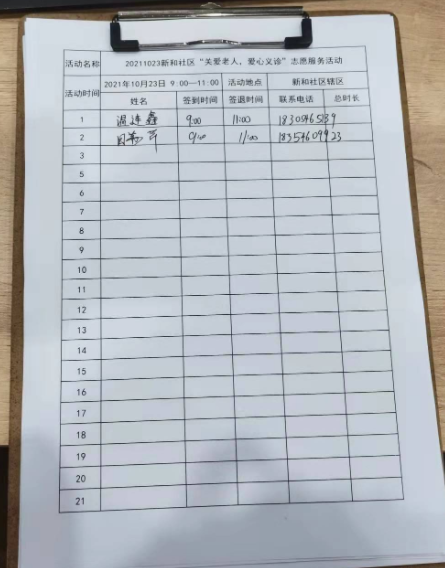 活动名称 20211023新和社区“关爱老人，爱心义诊”志愿服务活动
活动时间 2021年10月23日 9:00—11:00 活动地点 新和社区辖区
姓名 签到时间 签退时间 联系电话 总时长
1 温连鑫 9:00 11:00
2 9:00 11:00 18354609923
3
5
6
7
8
9
10
11
12
13
14
15
16
17
18
19
20
21